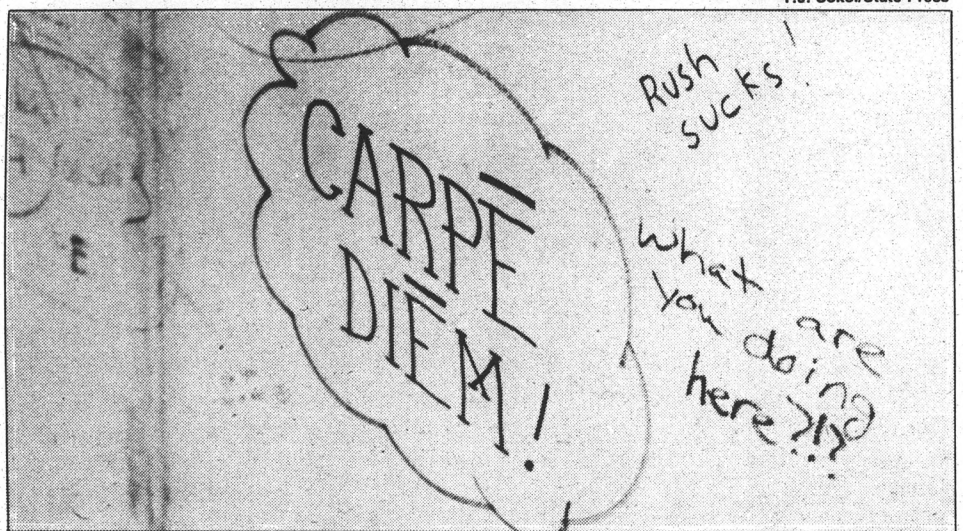 CARPE
DIEM!
Rush
sucks!
What are
you doing
here?!?